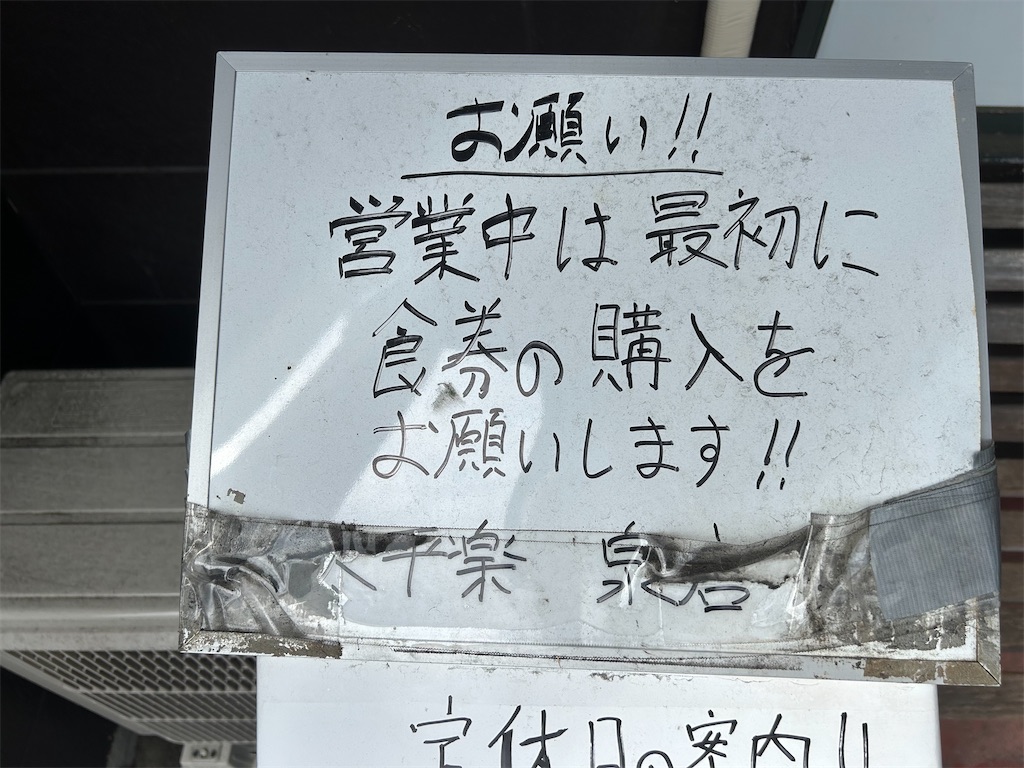 お願い!!
営業中は最初に
食券の購入を
お願いします!!
太平楽 泉店
定休日の案内!!